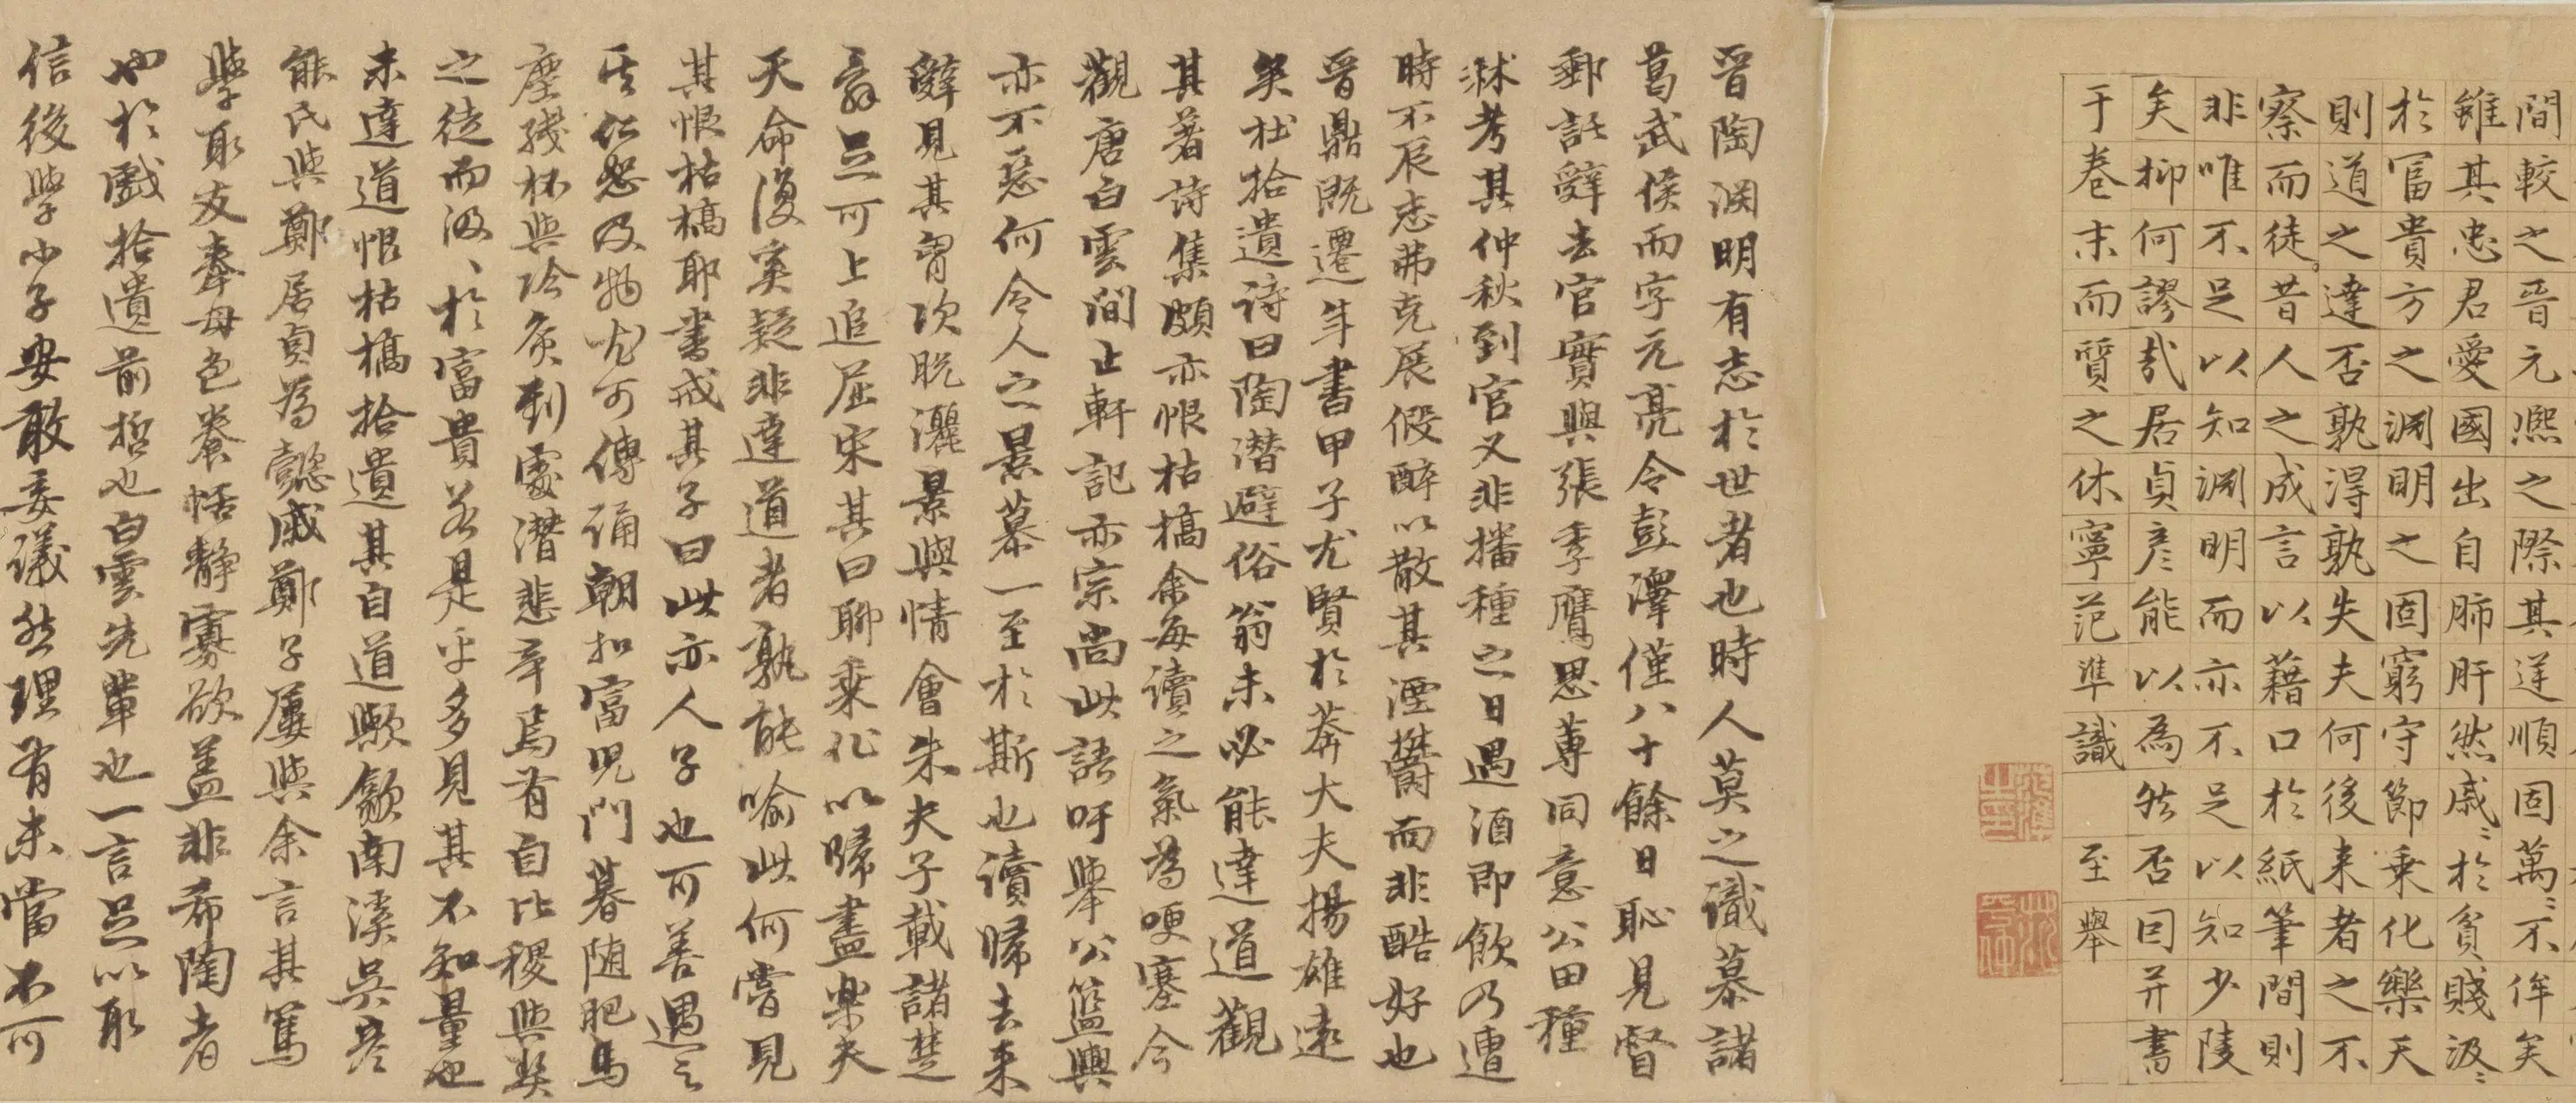 間較之晉元熈之際其逆順固萬〻不侔矣
雖其忠君愛國出自肺肝然戚〻於貧賤汲〻
於富貴方之淵明之固窮守節乗化樂天
則道之達否孰淂孰失夫何後来者之不
察而徒昔人之成言以藉口於紙筆間則
非唯不足以知淵明而亦不足以知少陵
矣抑何謬㢤居貞彦能以為然否囙并書
于卷末而質之休寧范準識 至舉
晉陶淵明有志於世者也時人莫之識慕諸
葛武侯而字元亮令彭澤僅八十餘日恥見督
郵託辭去官實與張季鷹思蓴同意公田種
秫考其仲秋到官又非播種之日遇酒即飲乃遭
時不辰志弗克展假醉以散其湮欝而非酷好也
晉鼎既遷年書甲子尤賢於莽大夫揚雄遠
矣杜拾遺詩曰陶潜避俗翁未必能達道觀
其著詩集頗亦恨枯槁余每讀之氣為哽塞今
觀唐白雲澗上軒記亦宗尚此語吁舉公籃輿
亦不惡何令人之景慕一至於斯也讀歸去来
辭見其胷次脱灑景與情會朱夫子載諸楚
辭足可上追屈宋其曰聊乗化以歸盡樂夫
天命復奚疑非達道者孰能喻此何嘗見
其恨枯槁耶書戒其子曰此亦人子也可善遇之
其仁恕及物尤可傳誦朝扣富児門暮随肥馬
塵殘杯與冷炙到處潜悲辛焉有自比稷與契
之徒而汲〻於富貴若是乎多見其不知量也
未達道恨枯槁拾遺其自道歟歙南溪吳彦
能氏與鄭居貞為懿戚鄭子屢與余言其篤
學取友奉母色養恬静寡欲盖非希陶者
也於戲拾遺前哲也白雲先輩也一言足以取
信後學小子安敢妄議然理有未當不可